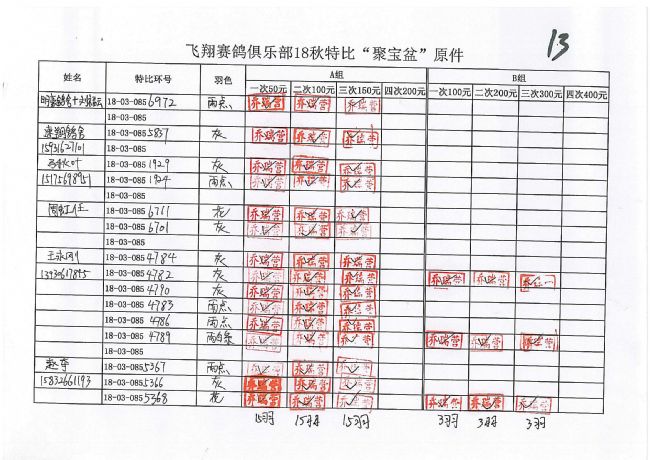 飞翔赛鸽俱乐部18秋特比“聚宝盆”原件 13
姓名 特比环号 羽色 A组 B组
一次50元 二次100元 三次150元 四次200元 一次100元 二次200元 三次300元 四次400元
18-03-0856972 雨点 乔瑞营 乔瑞营 乔瑞营
18-03-085
18-03-0855837 灰 乔瑞营 乔瑞营 乔瑞营
15931627101 18-03-085
18-03-0851929 灰 乔瑞营 乔瑞营 乔瑞营
18-03-0851924 雨点 乔瑞营 乔瑞营 乔瑞营
18-03-085
18-03-0856711 乔瑞营 乔瑞营 乔瑞营
18-03-0856701 灰 乔瑞营 乔瑞营 乔瑞营
18-03-085
18-03-0854784 灰 乔瑞营 乔瑞营 乔瑞营
18-03-0854782 灰 乔瑞营 乔瑞营 乔瑞营 乔瑞营 乔瑞营 乔
18-03-0854790 灰 乔瑞营 乔瑞营 乔瑞营
18-03-0854783 雨点 乔瑞营 乔瑞营 乔瑞营
18-03-0854786 雨点 乔瑞营 乔瑞营 乔瑞营
18-03-0854789 雨白条 乔瑞营 乔瑞营 乔瑞营 乔瑞营 乔瑞营 乔瑞营
18-03-085
赵夺 18-03-0855367 雨点 乔瑞营 乔瑞营 乔瑞营
15832661193 18-03-0855366 灰 乔瑞营 乔瑞营 乔瑞营
18-03-0855368 花 乔瑞营 乔瑞营 乔瑞营 乔瑞营 乔瑞营 乔瑞营
15羽 15羽 15羽 3羽 3羽 3羽